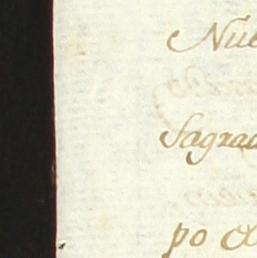 Nue
Sagrad
po